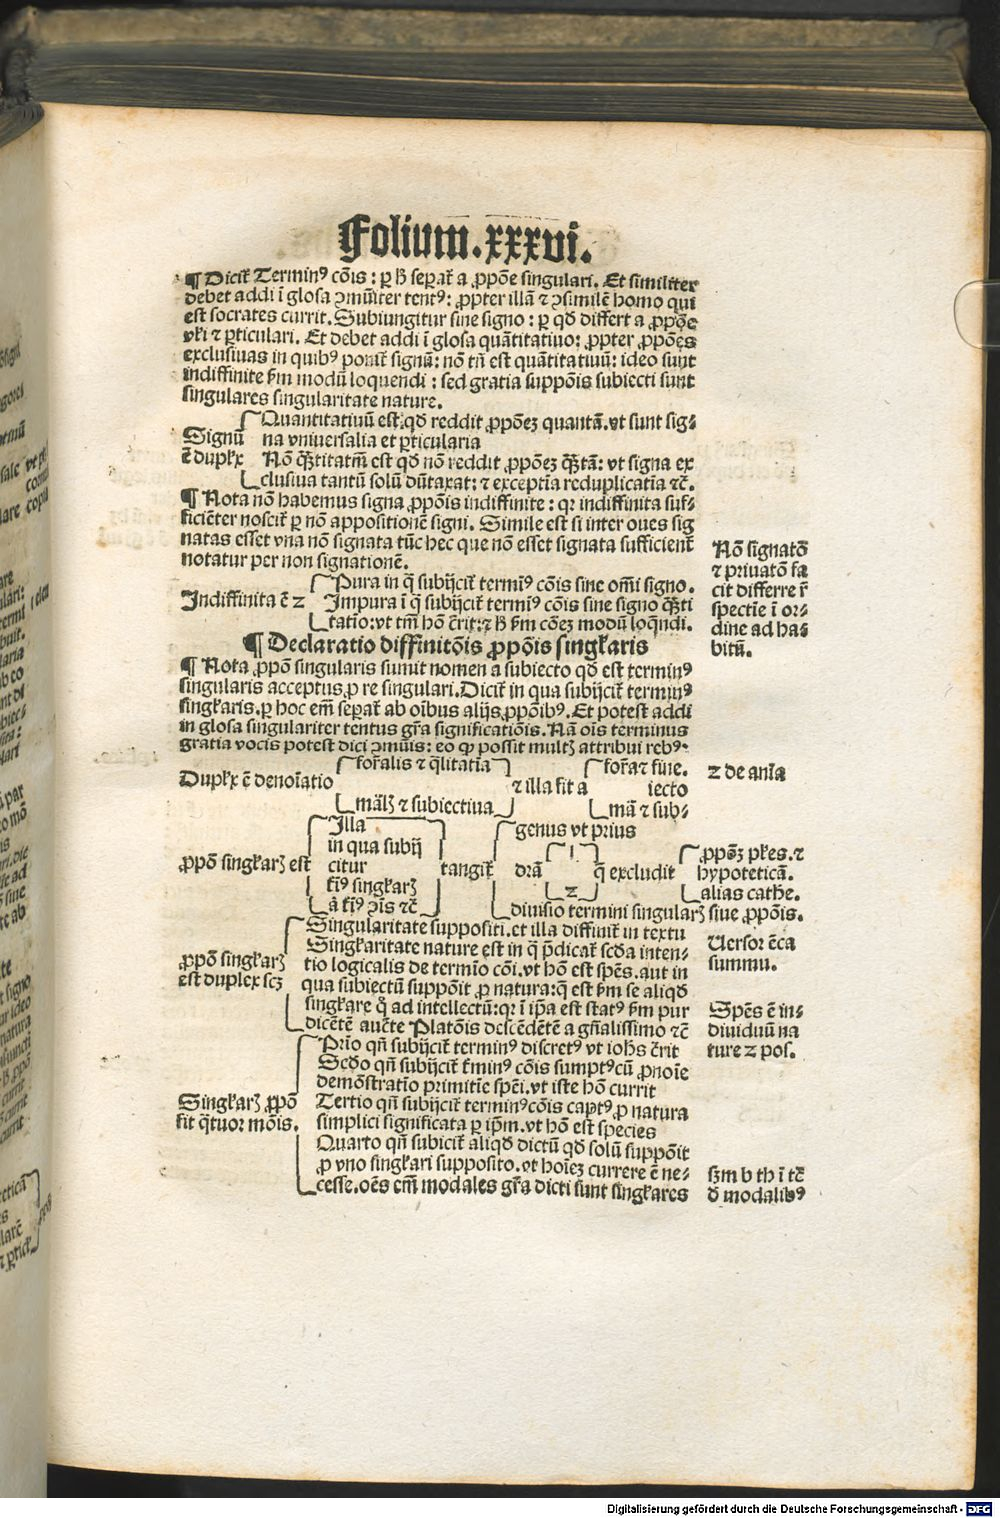 Folium.xxxvi.
¶ Dicit᷑ Terminꝰ cōis: ꝑ ħ seꝑat᷑ a ꝓpōe singulari. Et similiter
debet addi ī glosa ꝯmūiter tentꝰ: ꝓpter illā ⁊ ꝯsimilē homo qui
est socrates currit. Subiungitur sine signo: ꝑ qđ differt a ꝓpōe
vl̄i ⁊ ꝑticulari. Et debet addi ī glosa quātitatiuo: ꝓpter ꝓpōes
exclusiuas in quibꝰ ponit᷑ signū: nō tn̄ est quātitatiuū: ideo sunt
indiffinite ẜm modū loquendi: sed gratia suppōis subiecti sunt
singulares singularitate nature.
Signū ē duplx
Quantitatiuū est: qđ reddit ꝓpōeꝫ quantā. vt sunt sig-
na vniuersalia et ꝑticularia
Nō q̄titatiū est qđ nō reddit ꝓpōeꝫ q̄tā: vt signa ex
clusiua tantū solū dūtaxat: ⁊ exceptīa reduplicatīa ⁊c̄.
¶ Nota nō habemus signa ꝓpōis indiffinite: qꝛ indiffinita suf-
ficiēter noscit᷑ ꝑ nō appositionē signi. Simile est si inter oues sig
natas esset vna nō signata tūc hec que nō esset signata sufficient᷑
notatur per non signationē.
Nō signatō
⁊ priuatō fa
cit differre ī
spectīe ī or-
dine ad ha-
bitū.
Indiffinita ē 2
Pura in q̄ subijcit᷑ termīꝰ cōis sine om̄i signo.
Impura ī q̄ subijcit᷑ termīꝰ cōis sine signo q̄ti
tatio: vt tm̄ hō c̄rit: ⁊ ħ ẜm cōeꝫ modū loq̄ndi.
¶ Declaratio diffinitōis ꝓpōis singl̄aris
¶ Nota ꝓpō singularis sumit nomen a subiecto qđ est terminꝰ
singularis acceptus ꝓ re singulari. Dicit᷑ in qua subijcit᷑ terminꝰ
singl̄aris. ꝑ hoc em̄ seꝑat᷑ ab oībus alijs ꝓpōibꝰ. Et potest addi
in glosa singulariter tentus gr̄a significatiōis. Nā oīs terminus
gratia vocis potest dici ꝯmūis: eo ꝙ possit multꝭ attribui rebꝰ.
Duplx ē denoīatio
for̄alis ⁊ q̄litatīa
māl̄ꝭ ⁊ subiectiua
⁊ illa fit a
for̄a ⁊ siue.
iecto
mā ⁊ sub-
2 de anīa
ꝓpō singl̄arꝭ est
Illa
in qua subij
citur
t̄iꝰ singl̄arꝭ
ā t̄iꝰ ꝯis ⁊c̄
tangit᷑
genus vt prius
drā
1
2
q̄ excludit
ꝓpōeꝫ pl̄es. ⁊
hypoteticā.
alias cathe.
diuisio termini singularꝭ siue ꝓpōis.
ꝓpō singl̄arꝭ
est duplex scꝫ
Singularitate suppositi. et illa diffinit᷑ in textu
Singl̄aritate nature est in q̄ p̄dicat᷑ scđa inten-
tio logicalis de termīo cōi. vt hō est spēs. aut in
qua subiectū suppōit ꝓ natura: q̄ est ẜm se aliqđ
singl̄are ad intellectū: qꝛ ī ip̄a est statꝰ ẜm pur
dicētē auc̄te Platōis descēdētē a gn̄alissimo ⁊c̄
Uersor ēca
summu.
Spēs ē in-
diuiduū na
ture 2 pos.
Singl̄arꝭ ꝓpō
fit q̄tuor mōis.
Prīo qn̄ subijcit᷑ terminꝰ discretꝰ vt ioħs c̄rit
Scđo qn̄ subijcit᷑ t̄minꝰ cōis sumptꝰ cū ꝓnoīe
demōstratīo primitīe spēi. vt iste hō currit
Tertio qn̄ subijcit᷑ terminꝰ cōis captꝰ ꝓ natura
simplici significata ꝑ ip̄m. vt hō est species
Quarto qn̄ subicit᷑ aliqđ dictū qđ solū suppōit
ꝓ vno singl̄ari supposito. vt hoīeꝫ currere ē ne-
cesse. oēs em̄ modales gr̄a dicti sunt singl̄ares
ẜm b th ī tc̄
đ modalibꝰ
Digitalisierung gefördert durch die Deutsche Forschungsgemeinschaft - DFG